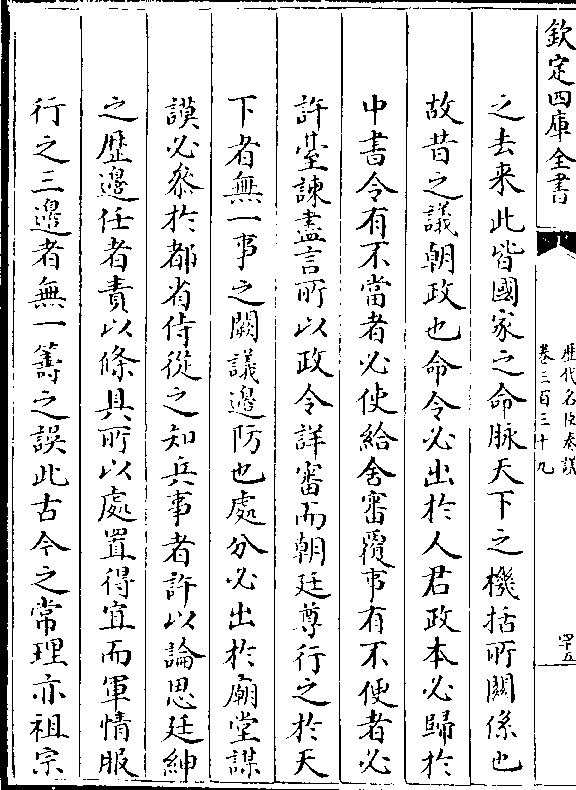 欽定四庫全書
歴代名臣奏議
卷三百三十九
四十五
之去来此皆國家之命脉天下之機括所關係也
故昔之議朝政也命令必出於人君政本必歸於
中書令有不當者必使給舍審覆事有不便者必
許臺諫盡言所以政令詳審而朝廷尊行之於天
下者無一事之闕議邊防也處分必出於廟堂謀
謨必叅於都省侍從之知兵事者許以論思廷紳
之歴邊任者責以條具所以處置得宜而軍情服
行之三邊者無一籌之誤此古今之常理亦祖宗